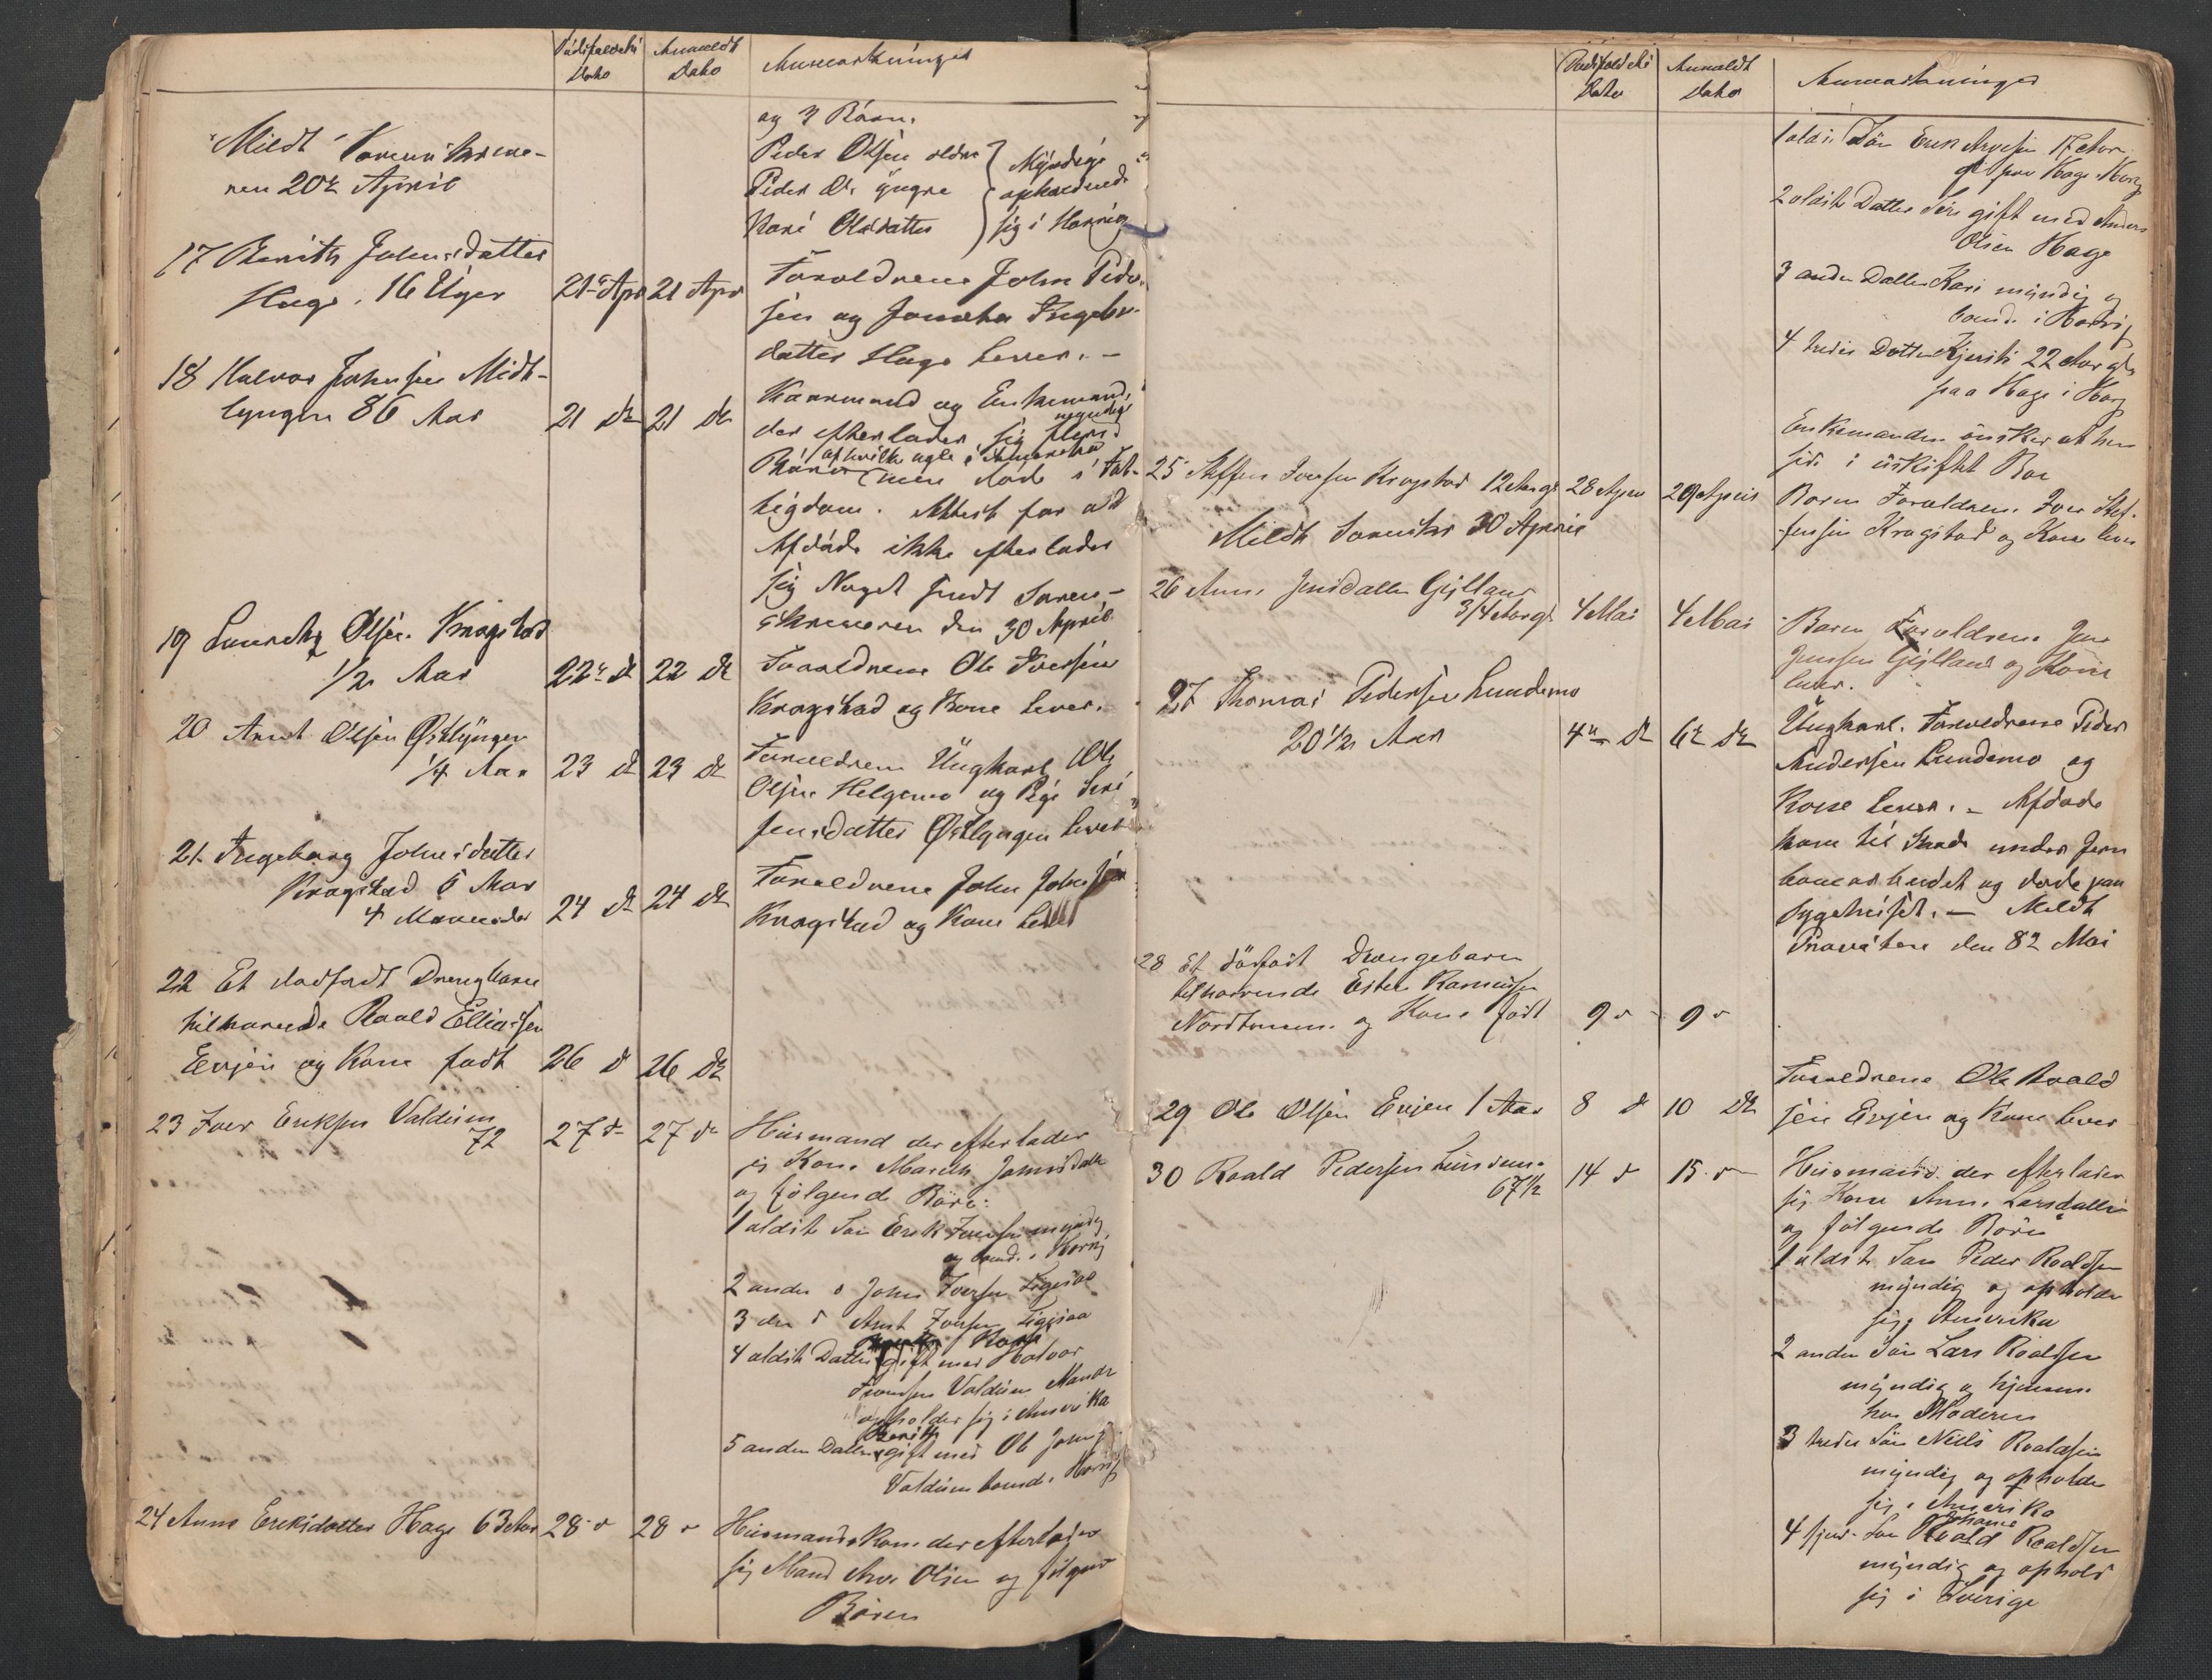 Dødsfaldets
Dato
Anmeldt
Dato
Anmærkninger
og 3 Børn.
Meldt
nen 20de April
Peder Olsen ældre
Peder Ols yngre
Kari Olsdatter
Myndige
opholdende
sig i Horrig
17 Berith Johnsdatter
Hage. 16 Uger
21de Apr
21 Apr
Forældrene John Peder-
sen og Ingebr.
datter Hage lever. -
18 Halvor Johnsen Midt-
lyngen 86 Aar
21 de
21 de
Kaarmand og Enkemand,
der efterlader sig flere
myndige
Børn
af hvilke nogle i Amerika
men døde i Fat-
tigdom. Attest for at
Afdøde ikke efterlader
sig Noget sendt Soren-
skriveren den 30 April
19 Olsen Kragstad
1/2 Aar
22de d
22 de
Forældrene Ole Iversen
Kragstad og Kone lever.
20 Arnt Olsen Østlyngen
1/4 Aar
23 d
23 de
Forældrene Ungkarl Ole
Olsen Helgemo og Pige Siri
Jensdatter Østlyngen lever
21 Ingeborg Johnsdatter
Kragstad 6 Aar
4 Maaneder
24 de
24 de
Forældrene John Johnsen
Kragstad og Kone lever
22 Et dødfødt Drengbarn
tilhørende Roald Eliassen
Evjen og Kone født
26 d
26 de
23 Iver Eriksen Valdum
72
27 d
27 d
Husmand der efterlader
sig Kone Marith Johnsdatter
og følgende Børn:
1 ældste Søn Erik Iversen myndig
og boend. i Horrig
2 anden d John Iversen Ligesaa
3 die d Arnt Iversen Ligesaa
4 ældste Datter gift med Halvor
Iversen Valdum
opholder sig i Amerika
Berith
5 anden Datter gift med Ole Johns
Valdum boend. i Horrig
24 Anne Eriksdatter Hage 63 Aar
28 d
28 d
Husmandskone der efterlader
sig Mand Arve Olsen og følgend
Børen
Dødsfaldets
Dato
Anmeldt
Dato
Anmærkninger
1 ældste Søn Erik Arvesen 17 Aar
gl paa Hage i Horg
2 ældste Datter Siri gift med Anders
Olsen Hage
3 anden Datter Kari myndig og
boend. i Horrig
4 tredie Datter Kjersti 22 Aar gl
paa Hage i Horg
Enkemanden ønsker at hen
sidde i uskiftet Bo
25 Steffen Iversen Kragstad 12 Aar gl
28 Apr
29 April
Barnets Forældrene Iver Stef-
fensen Kragstad og Kone lever
Meldt Sorenskr 30 April
26 Anne Jensdatter Gylland
3/4 Aar gl
4 Mai
4 Mai
Barnets Forældrene Jens
Jensen Gylland og Kone
lever.
27 Thomas Pedersen Lundemo
20 1/2 Aar
4de d
6te de
Ungkarl. Forældrene Peder
Andersen Lundemo og
Kone lever. - Afdøde
kom til Skade under Jern
banearbeidet og døde paa
Sygehuset. - Meldt
Provsten den 8de Mai
28 Et dødfødt Drengebarn
tilhørende Esten Rasmusen
Nordtømme og Kone født
9 d
9 d
29 Ole Olsen Evjen 1 Aar
8 d
10 de
Forældrene Ole Roald
sen Evjen og Kone lever
30 Roald Pedersen Lundemo
67 1/2
14 d
15 d
Husmand. der efterlader
sig Kone Anne Larsdatter
og følgende Børn
1 ældste Søn Peder Roaldsen
myndig og opholder
sig i Amerika
2 anden Søn Lars Roaldsen
myndig og hjemme
hos Moderen
3 tredie Søn Niels Roaldsen
myndig og opholder
sig i Amerika
4 fjerd. Søn Roald Roaldsen
myndig og ophold
sig i Sverige